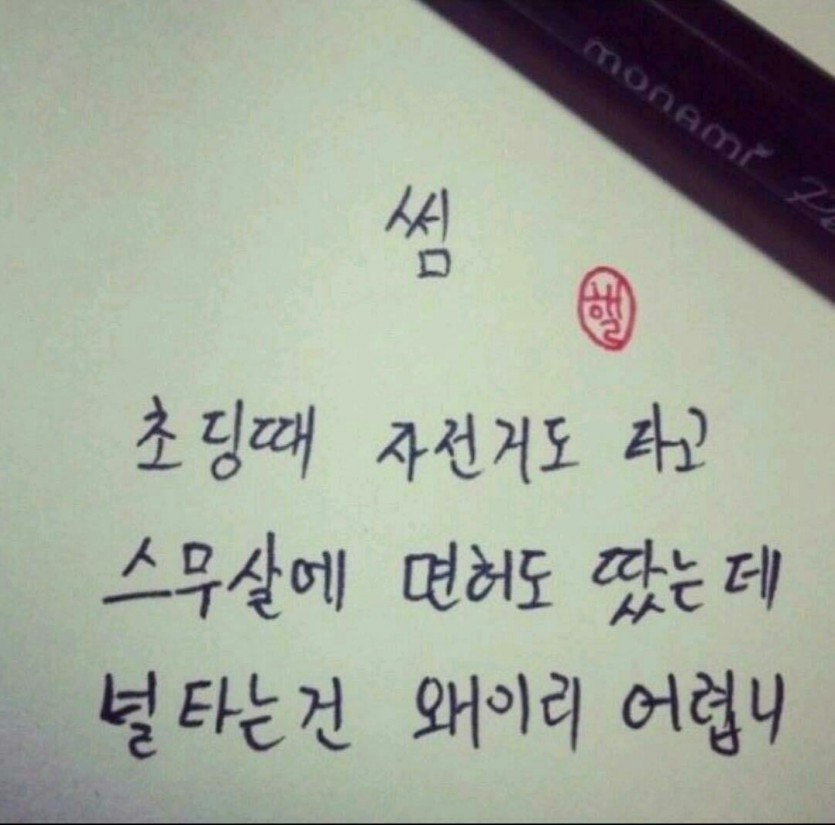 monami Pl
썸
핼
초딩때 자전거도 타고
스무살에 면허도 땄는데
널 타는건 왜이리 어렵니